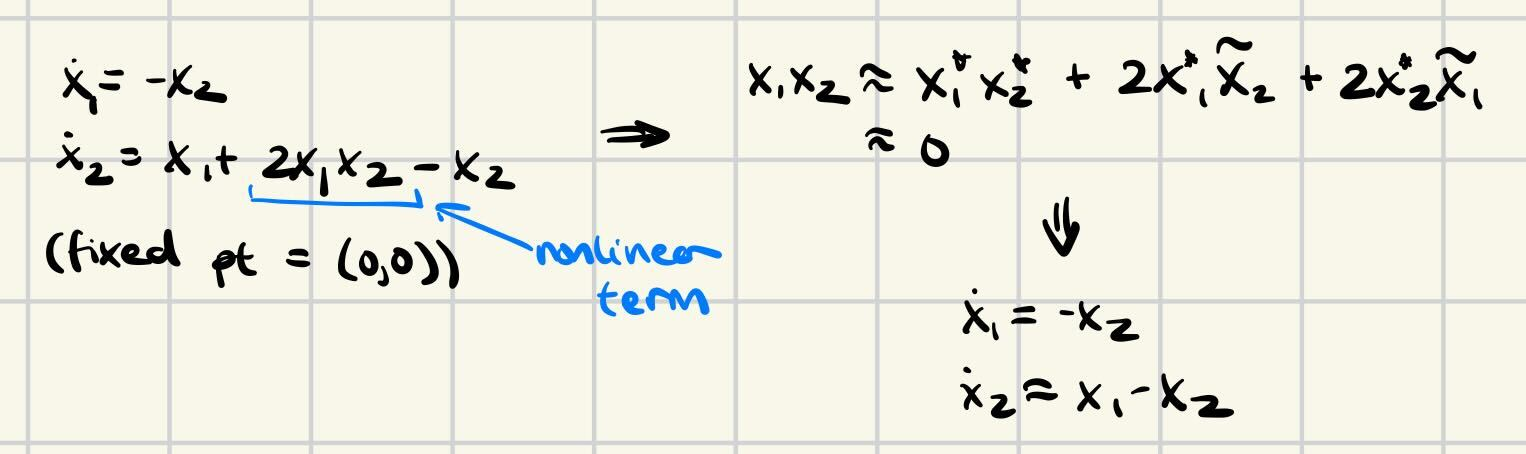 ẋ₁ = -x₂
ẋ₂ = x₁ + 2x₁x₂ - x₂
(fixed pt = (0,0))
nonlinear
term
⇒
x₁x₂ ≈ x₁*x₂* + 2x₁*x̃₂ + 2x₂*x̃₁
≈ 0
⇓
ẋ₁ = -x₂
ẋ₂ ≈ x₁ - x₂